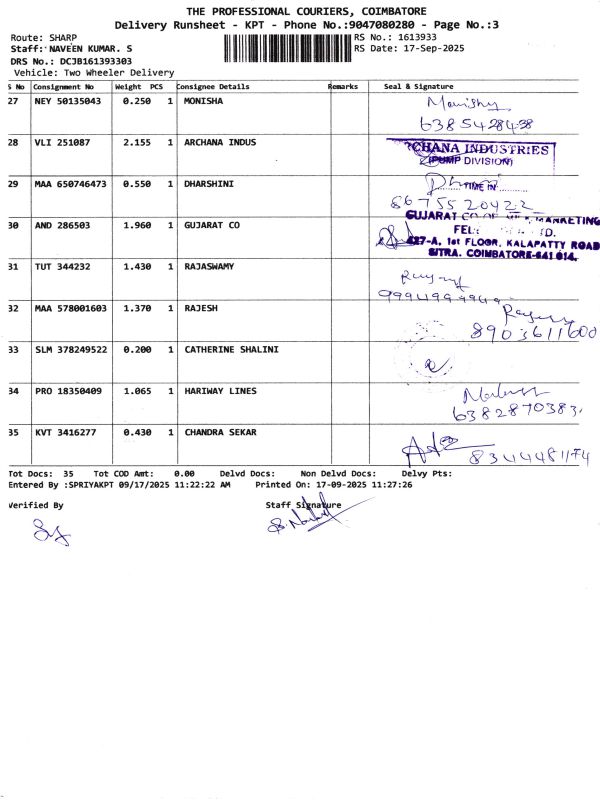 THE PROFESSIONAL COURIERS, COIMBATORE
Delivery Runsheet - KPT - Phone No.:9047080280 - Page No.:3
Route: SHARP RS No.: 1613933
Staff: NAVEEN KUMAR. S RS Date: 17-Sep-2025
DRS No.: DCJB161393303
Vehicle: Two Wheeler Delivery
S No Consignment No Weight PCS Consignee Details Remarks Seal & Signature
27 NEY 50135043 0.250 1 MONISHA Monisha
6385428438
28 VLI 251087 2.155 1 ARCHANA INDUS RCHANA INDUSTRIES
(PUMP DIVISION)
29 MAA 650746473 0.550 1 DHARSHINI TIME IN
8675520422
30 AND 286503 1.960 1 GUJARAT CO GUJARAT CO OP MARKETING
FED LTD.
427-A, 1st FLOOR, KALAPATTY ROAD
SITRA. COIMBATORE-641 014.
31 TUT 344232 1.430 1 RAJASWAMY
32 MAA 578001603 1.370 1 RAJESH
8903611600
33 SLM 378249522 0.200 1 CATHERINE SHALINI
34 PRO 18350409 1.065 1 HARIWAY LINES
6382870383
35 KVT 3416277 0.430 1 CHANDRA SEKAR
8344481174
Tot Docs: 35 Tot COD Amt: 0.00 Delvd Docs: Non Delvd Docs: Delvy Pts:
Entered By :SPRIYAKPT 09/17/2025 11:22:22 AM Printed On: 17-09-2025 11:27:26
Verified By Staff Signature